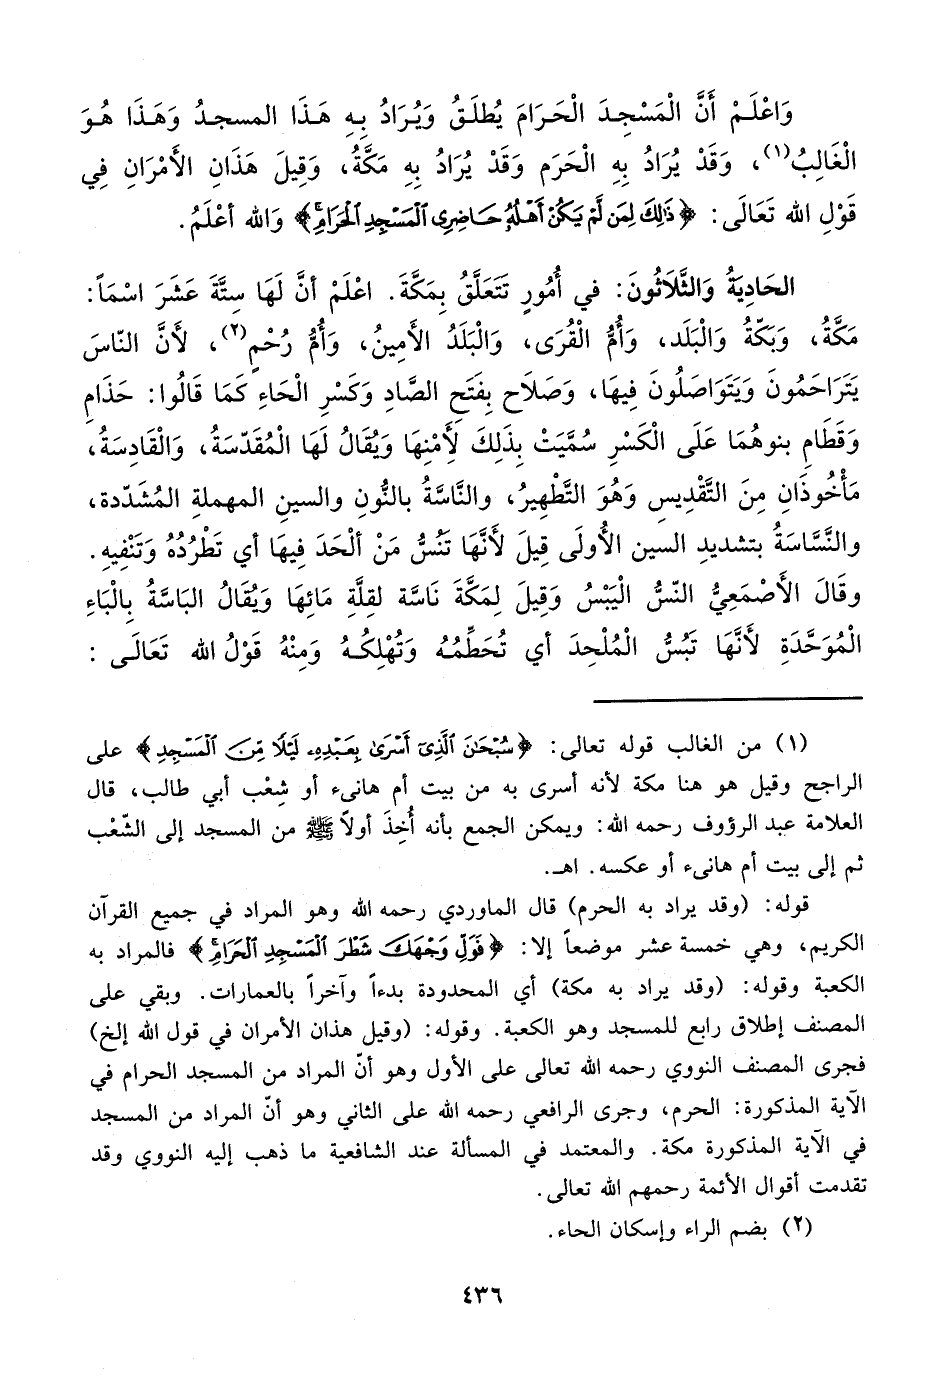 وَاعْلَمْ أَنَّ الْمَسْجِدَ الْحَرَامَ يُطلَقُ وَيُرَادُ بِهِ هَذَا المسجدُ وَهَذَا هُوَ
الْغَالِبُ(١)، وَقَدْ يُرَادُ بِهِ الْحَرَم وَقَدْ يُرَادُ بِهِ مَكَّةُ، وَقِيلَ هَذَانِ الأَمْرَانِ فِي
قَوْلِ الله تَعَالَى: ﴿ذَٰلِكَ لِمَن لَّمْ يَكُنْ أَهْلُهُۥ حَاضِرِى ٱلْمَسْجِدِ ٱلْحَرَامِۚ﴾ وَالله أعْلَمُ.
الحَادِيَةُ وَالثَّلَاثُونَ: في أُمُورٍ تَتَعَلَّقُ بِمَكَّةَ. اعْلَمْ أنَّ لَهَا ستَّةَ عَشَرَ اسْماً:
مَكَّةُ، وَبَكَّةُ وَالْبَلَد، وَأُمُّ الْقُرَى، وَالْبَلَدُ الأَمِينُ، وَأُمُّ رُحْمٍ(٢)، لأَنَّ النّاسَ
يَتَرَاحَمُونَ وَيَتَوَاصَلُونَ فِيهَا، وَصَلَاح بِفَتَحِ الصَّادِ وَكَسْرِ الْحَاءِ كَمَا قَالُوا: حَذَامِ
وَقَطَامِ بنوهُمَا عَلَى الْكَسْرِ سُمَّيَتْ بِذَلِكَ لأَمْنِهَا وَيُقَالُ لَهَا الْمُقَدّسَةُ، وَالْقَادِسَةُ،
مَأْخُوذَانِ مِنَ التَّقْدِيسِ وَهُوَ التَّطْهِيرُ، والنَّاسَّةُ بالنُّونِ والسينِ المهملةِ المُشَدّدة،
والنَّسَّاسَةُ بتشديدِ السين الأُولَى قِيلَ لأَنَّهَا تَنُسُّ مَنْ ألْحَدَ فِيهَا أي تَطْرُدُهُ وَتَنْفِيهِ.
وقَالَ الأَصْمَعِيُّ النّسُّ الْيَبْسُ وَقِيلَ لِمَكَّةَ نَاسَّة لقِلَّةِ مَائِهَا وَيُقَالُ البَاسَّةُ بِالْبَاءِ
الْمُوَحَّدَةِ لأَنَّهَا تَبُسُّ الْمُلْحِدَ أي تُحَطِّمُهُ وَتُهْلِكُهُ وَمِنْهُ قَوْلُ الله تَعَالَى:
(١) من الغالب قوله تعالى: ﴿سُبْحَٰنَ ٱلَّذِىٓ أَسْرَىٰ بِعَبْدِهِۦ لَيْلًا مِّنَ ٱلْمَسْجِدِ﴾ على
الراجح وقيل هو هنا مكة لأنه أسرى به من بيت أم هانىء أو شِعْب أبي طالب، قال
العلامة عبد الرؤوف رحمه الله: ويمكن الجمع بأنه أُخِذَ أولاً ﷺ من المسجد إلى الشّعْب
ثم إلى بيت أم هانىء أو عكسه. اهـ.
قوله: (وقد يراد به الحرم) قال الماوردي رحمه الله وهو المراد في جميع القرآن
الكريم، وهي خمسة عشر موضعاً إلا: ﴿فَوَلِّ وَجْهَكَ شَطْرَ ٱلْمَسْجِدِ ٱلْحَرَامِۚ﴾ فالمراد به
الكعبة وقوله: (وقد يراد به مكة) أي المحدودة بدءاً وآخراً بالعمارات. وبقي على
المصنف إطلاق رابع للمسجد وهو الكعبة. وقوله: (وقيل هذان الأمران في قول الله إلخ)
فجرى المصنف النووي رحمه الله تعالى على الأول وهو أنّ المراد من المسجد الحرام في
الآية المذكورة: الحرم، وجرى الرافعي رحمه الله على الثاني وهو أنّ المراد من المسجد
في الآية المذكورة مكة. والمعتمد في المسألة عند الشافعية ما ذهب إليه النووي وقد
تقدمت أقوال الأئمة رحمهم الله تعالى.
(٢) بضم الراء وإسكان الحاء.
٤٣٦